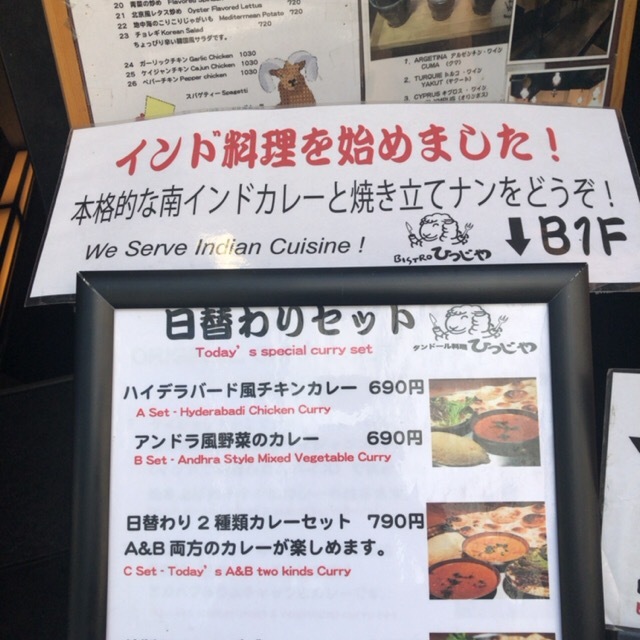 20 青菜の炒め Flavored
21 北京風レタス炒め Oyster Flavored Lettus 720
22 地中海のこりこりじゃがいも Mediterranean Potato 720
23 チョレギ Korean Salad 720
ちょっぴり辛い韓国風サラダです。
24 ガーリックチキン Garlic Chicken 1030
25 ケイジャンチキン Cajun Chicken 1030
26 ペパーチキン Pepper chicken 1030
スパゲティー Spagetti
1. ARGETINA アルゼンチン・ワイン
CUMA (クマ)
2. TURQUIE トルコ・ワイン
YAKUT (ヤクート)
3. CYPRUS キプロス・ワイン
インド料理を始めました!
本格的な南インドカレーと焼き立てナンをどうぞ!
We Serve Indian Cuisine !
BISTRO ひつじや
↓B1F
日替わりセット
Today's special curry set
タンドール料理 ひつじや
ハイデラバード風チキンカレー 690円
A Set - Hyderabadi Chicken Curry
アンドラ風野菜のカレー 690円
B Set - Andhra Style Mixed Vegetable Curry
日替わり2種類カレーセット 790円
A&B 両方のカレーが楽しめます。
C Set - Today's A&B two kinds Curry